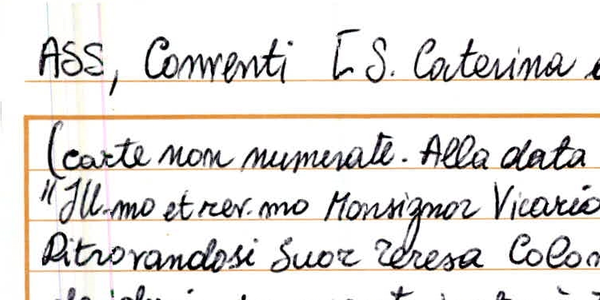 ASS, Conventi [S. Caterina
(carte non numerate. Alla data
"Ill.mo et rev.mo Monsignor Vicario
Ritrovandosi Suor Teresa Colo